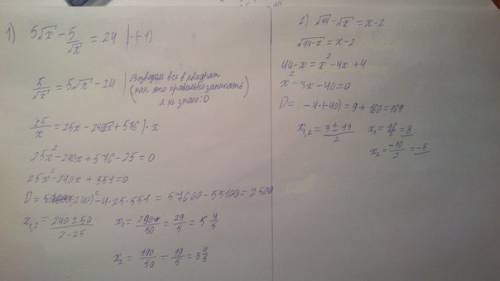 1) 5√x - 5/√x = 24 |·(-1)
5/√x = 5√x - 24 | Возводим все в квадрат
(как это правильно записать
я не знаю :D
25/x = 25x - 240√x + 576 | · x
25x² - 240x + 576 - 25 = 0
25x² - 240x + 551 = 0
D = (240)² - 4·25·551 = 57600 - 55100 = 2500
x₁,₂ = 240±50 / 2·25 x₁ = 290/50 = 29/5 = 5 4/5
x₂ = 190/50 = 19/5 = 3 4/5
2) √44 - √x = x - 2
√44-x = x - 2
44 - x = x² - 4x + 4
x² - 3x - 40 = 0
D = -4·(-40) = 9 + 160 = 169
x₁,₂ = 3±13 / 2 x₁ = 16/2 = 8
x₂ = -10/2 = -5